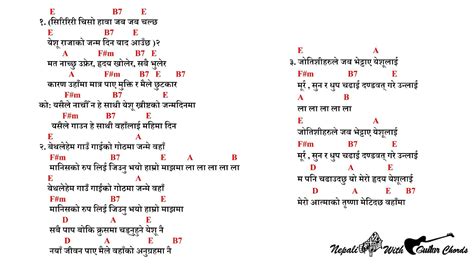 E B7 E
१. (सिरिरिरी चिसो हावा जब जब चल्छ
E B7 E
येशू राजाको जन्म दिन याद आउँछ )२
F#m B7 E
मत नाच्छु उफ्रेर, हृदय खोलेर, सबै भुलेर
A F#m B7 E
कारण उहाँमा मात्र पाए मुक्ति र मैले छुटकार
E F#m B7 E
को: यसैले नाचौँ न हे साथी येशू ख्रीष्टको जन्मदिनमा
F#m B7 E
यसैले गाउन हे साथी वहाँलाई महिमा दिन
E D A E
२. बेथलेहेम गाउँ गाईको गोठमा जन्मे वहाँ
F#m B7 E A B
मानिसको रुप लिई जिउनु भयो हाम्रो माझमा ला ला ला ला ला
E D A E
बेथलेहेम गाउँ गाईको गोठमा जन्मे वहाँ
F#m B7 E
मानिसको रुप लिई जिउनु भयो हाम्रो माझमा
D A E
सबै पाप बोकि क्रुसमा चढ्नुहुने येशू नै
D A E
नयाँ जीवन पाए मैले वहाँको अनुग्रहमा नै
E D A E
३. जोतिशीहरुले जब भेट्टाए येशूलाई
F#m B7 E
मूर्र, सुन र धुप चढाई दण्डवत् गरे उन्लाई
A B
ला ला ला ला ला
E D A E
जोतिशीहरुले जब भेट्टाए येशूलाई
F#m B7 E
मूर्र, सुन र धुप चढाई दण्डवत् गरे उन्लाई
D A E
म पनि चढाउदछु यो मेरो हृदय येशूलाई
D A E
मेरो आत्माको तृष्णा मेटिदिछ वहाँमा
Nepali With Guitar Chords